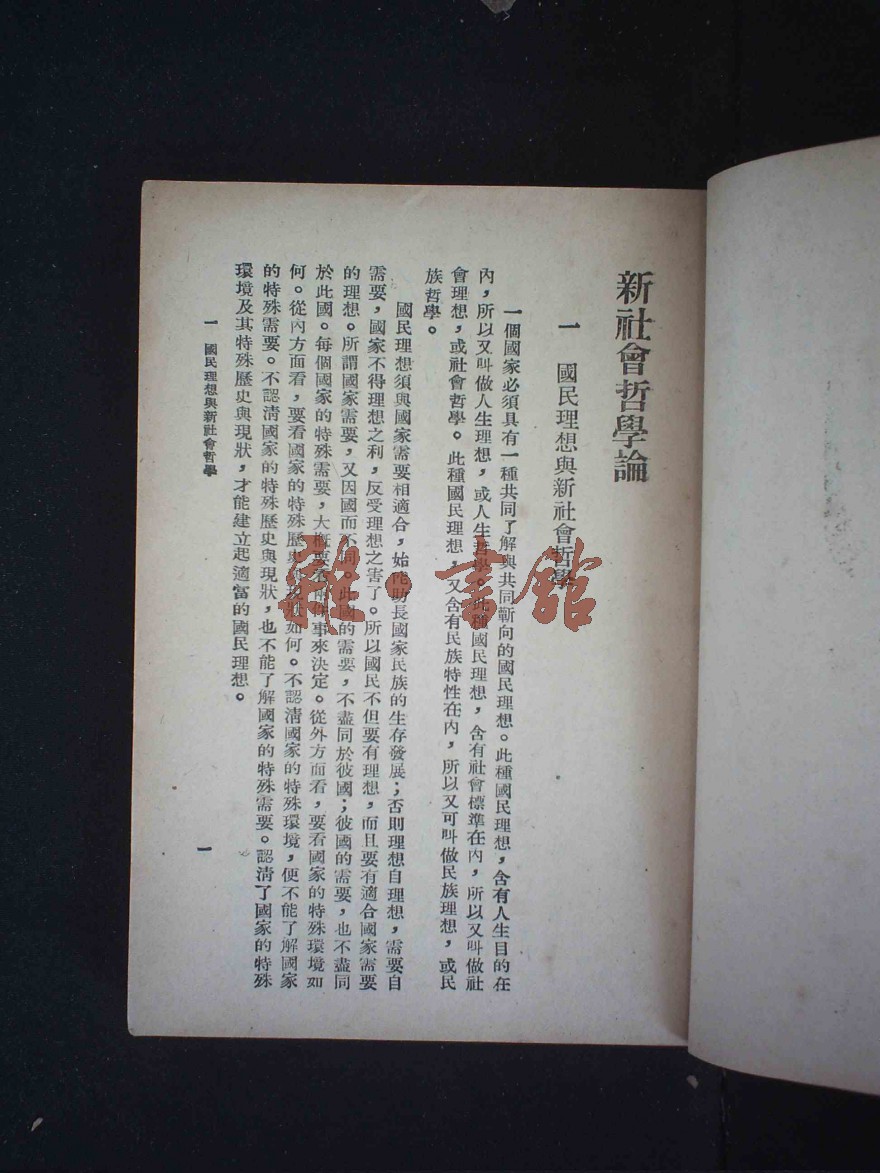 新社會哲學論
一　國民理想與新社會哲學
一個國家必須具有一種共同了解與共同蘄向的國民理想。此種國民理想，含有人生目的在
內，所以又叫做人生理想，或人生哲學。此種國民理想，含有社會標準在內，所以又叫做社
會理想，或社會哲學。此種國民理想，又含有民族特性在內，所以又可叫做民族理想，或民
族哲學。
國民理想須與國家需要相適合，始能助長國家民族的生存發展；否則理想自理想，需要自
需要，國家不得理想之利，反受理想之害了。所以國民不但要有理想，而且要有適合國家需要
的理想。所謂國家需要，又因國而不同。此國的需要，不盡同於彼國；彼國的需要，也不盡同
於此國。每個國家的特殊需要，大概要看兩件事來決定。從外方面看，要看國家的特殊環境如
何。從內方面看，要看國家的特殊歷史與現狀如何。不認清國家的特殊環境，便不能了解國家
的特殊需要。不認清國家的特殊歷史與現狀，也不能了解國家的特殊需要。認清了國家的特殊
環境及其特殊歷史與現狀，才能建立起適當的國民理想。
一　國民理想與新社會哲學
一
雅·書館